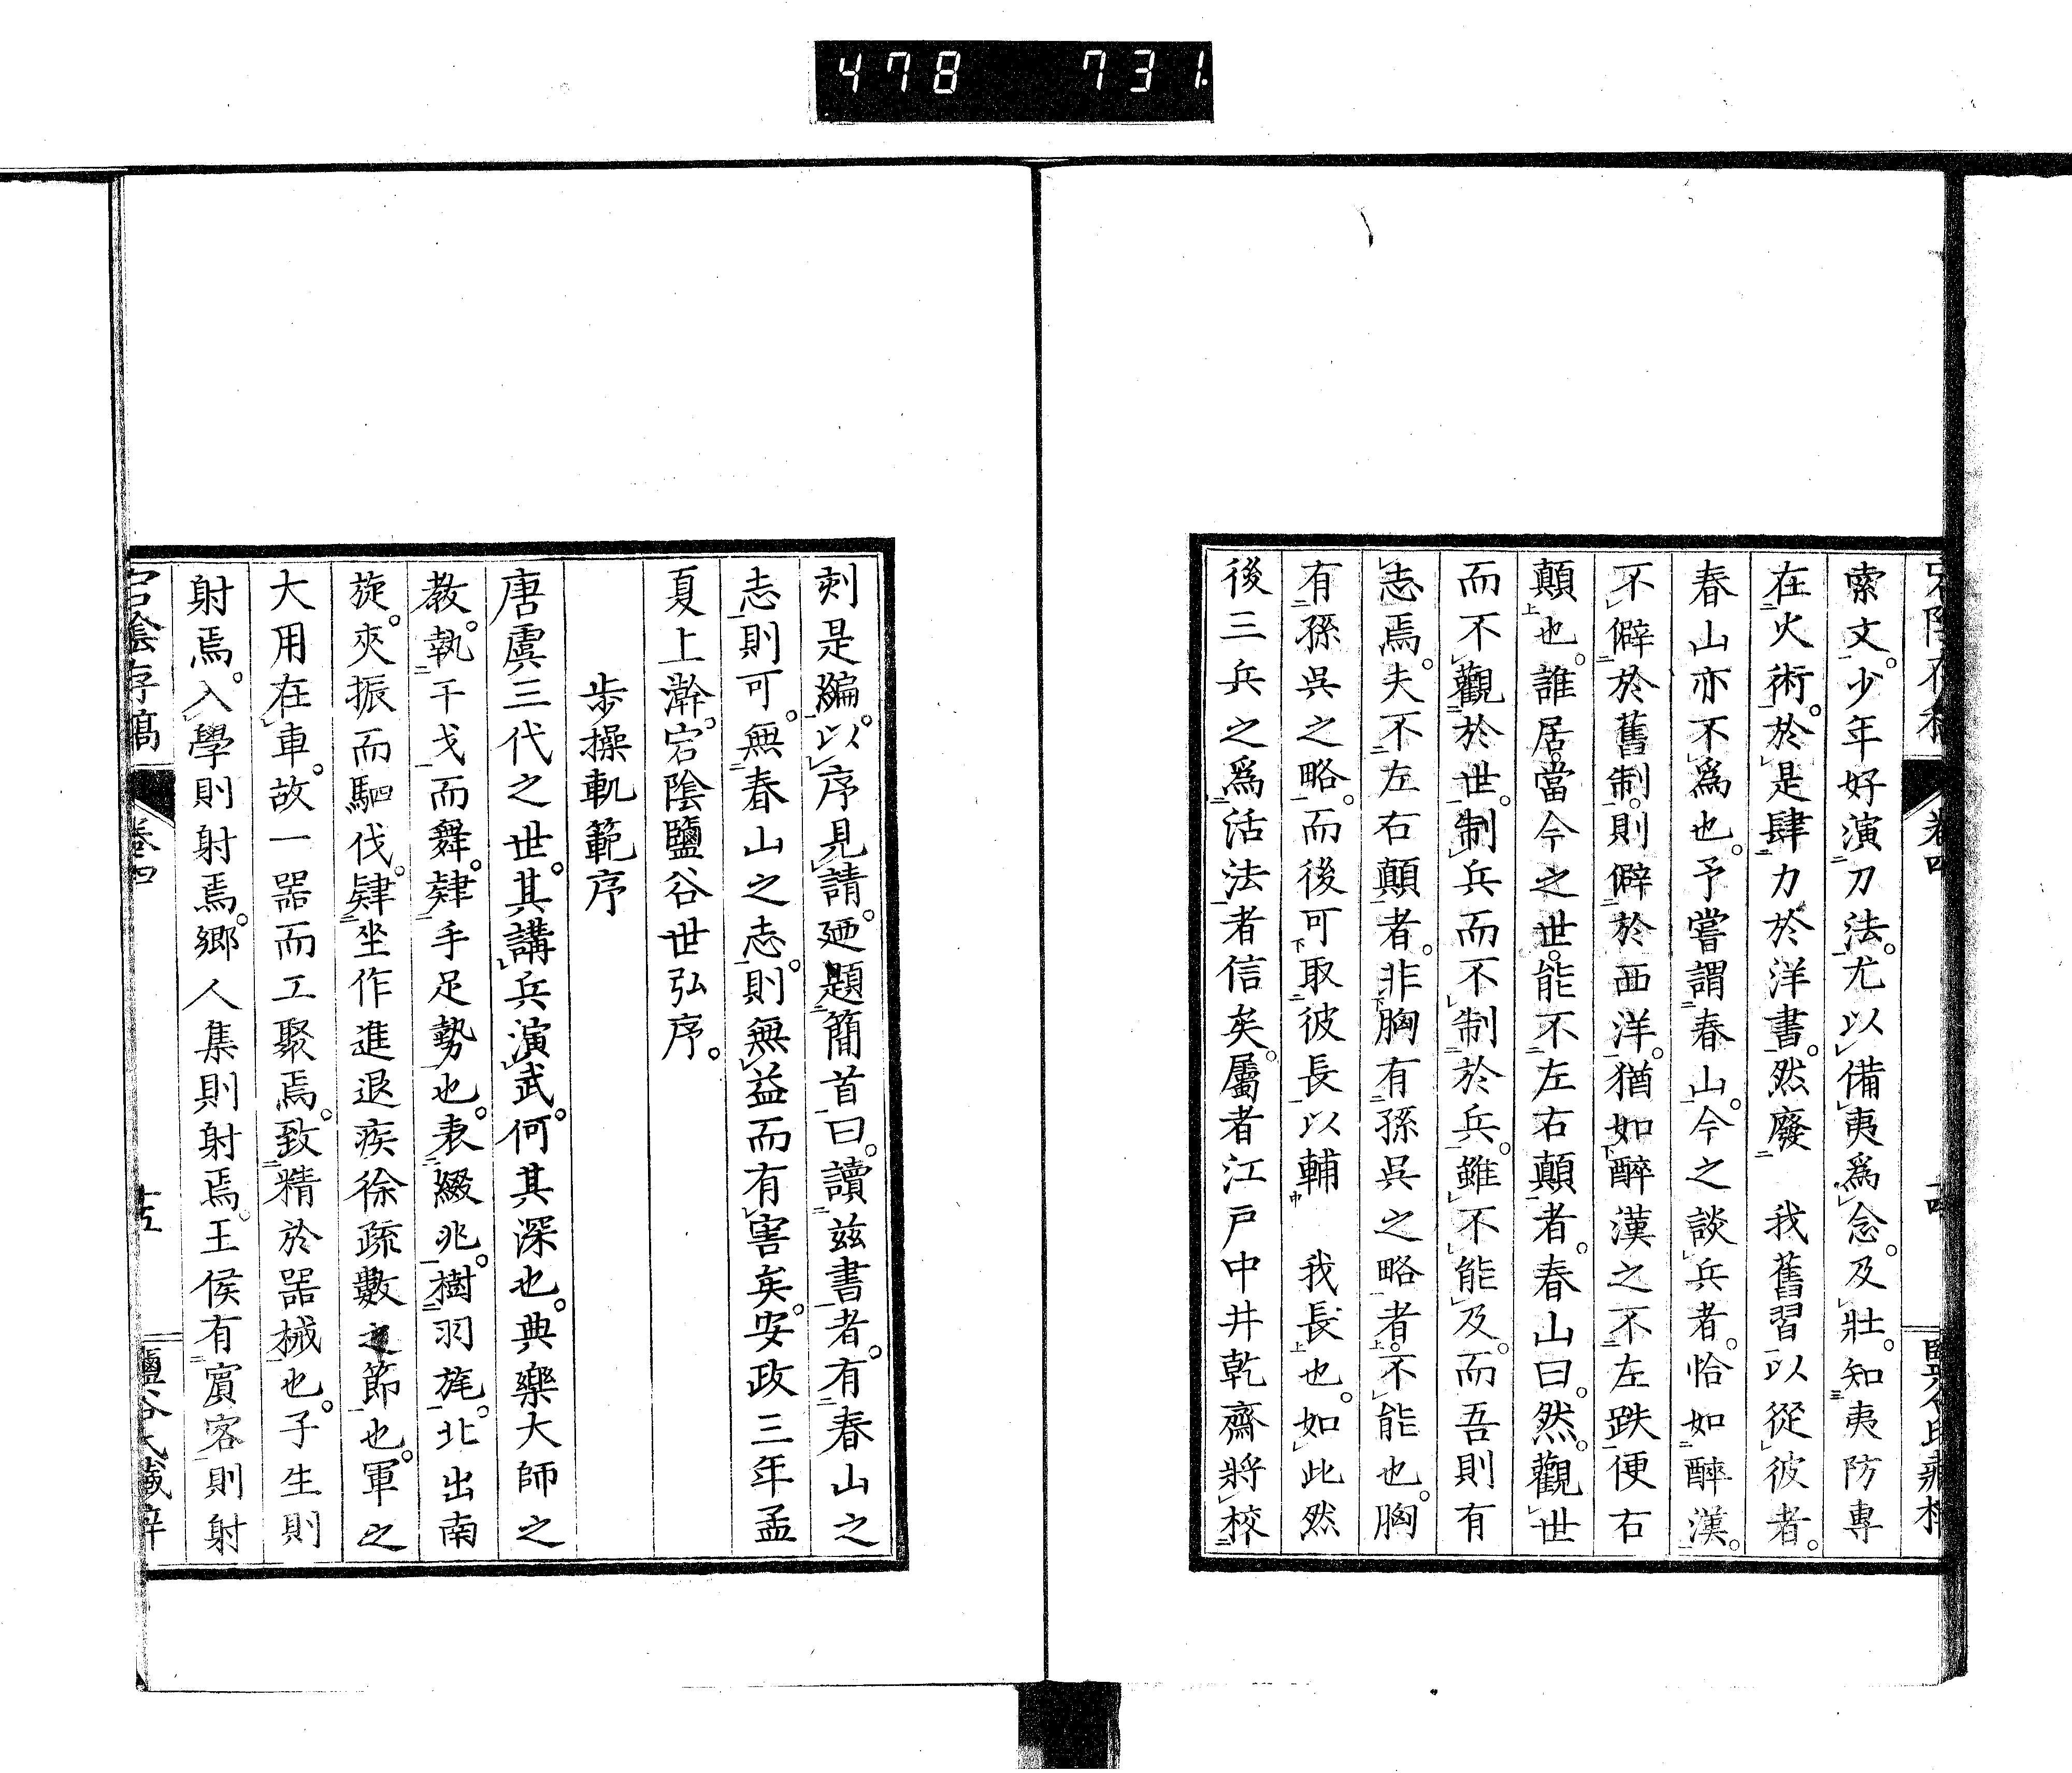 478 731.
索文。少年好演刀法。尤以備夷爲念。及壯。知夷防專
在火術。於是肆力於洋書。然廢 我舊習以從彼者。
春山亦不爲也。予嘗謂春山。今之談兵者。恰如醉漢。
不僻於舊制。則僻於西洋。猶如醉漢之不左跌便右
顛也。誰居。當今之世。能不左右顛者。春山曰。然。觀世
而不觀於世。制兵而不制於兵。雖不能及。而吾則有
志焉。夫不左右顛者。非胸有孫吳之略者。不能也。胸
有孫吳之略。而後可取彼長以輔 我長也。如此然
後三兵之爲活法者信矣。屬者江戸中井乾齋將校
刻是編。以序見請。廼題簡首曰。讀兹書者。有春山之
志則可。無春山之志。則無益而有害矣。安政三年孟
夏上澣。宕陰鹽谷世弘序。
步操軌範序
唐虞三代之世。其講兵演武。何其深也。典樂大師之
教。執干戈而舞。肄手足勢也。表綴兆。樹羽旄。北出南
旋。夾振而駟伐。肄坐作進退疾徐疏數之節也。軍之
大用在車。故一器而工聚焉。致精於器械也。子生則
射焉。入學則射焉。鄉人集則射焉。王侯有賓客則射
宕陰存稿 卷四 十五 鹽谷氏藏